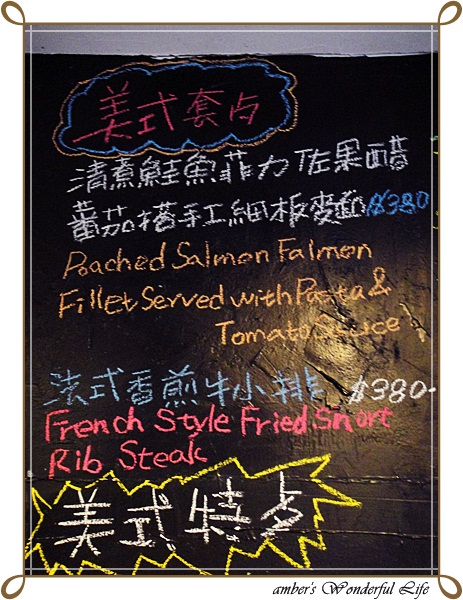 美式套点
清煮鮭魚菲力佐果醋
蕃茄搭手工細板麵$380
Poached Salmon Falmon
Fillet Served with Pasta &
Tomato Sauce
法式香煎牛小排 $380-
French Style Fried Snort
Rib Steak
美式特点
amber's Wonderful Life